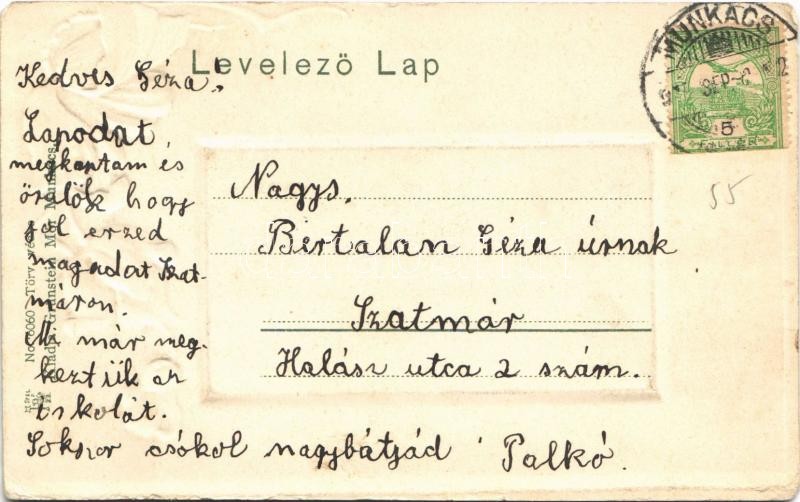 Levelező Lap
MUNKÁCS
SEP
5
FILLÉR
55
Kedves Géza!
Lapodat
megkaptam és
örülök hogy
jól erzed
magadat Szat-
máron.
Mi már meg-
keztük az
iskolát.
Sokszor csókol nagybátjád Palkó.
Nagys.
Bertalan Géza úrnak
Szatmár
Halász utca 2 szám.
No. 6060 Törv. véd
Kiadja: Grünstein Mór Munkács.